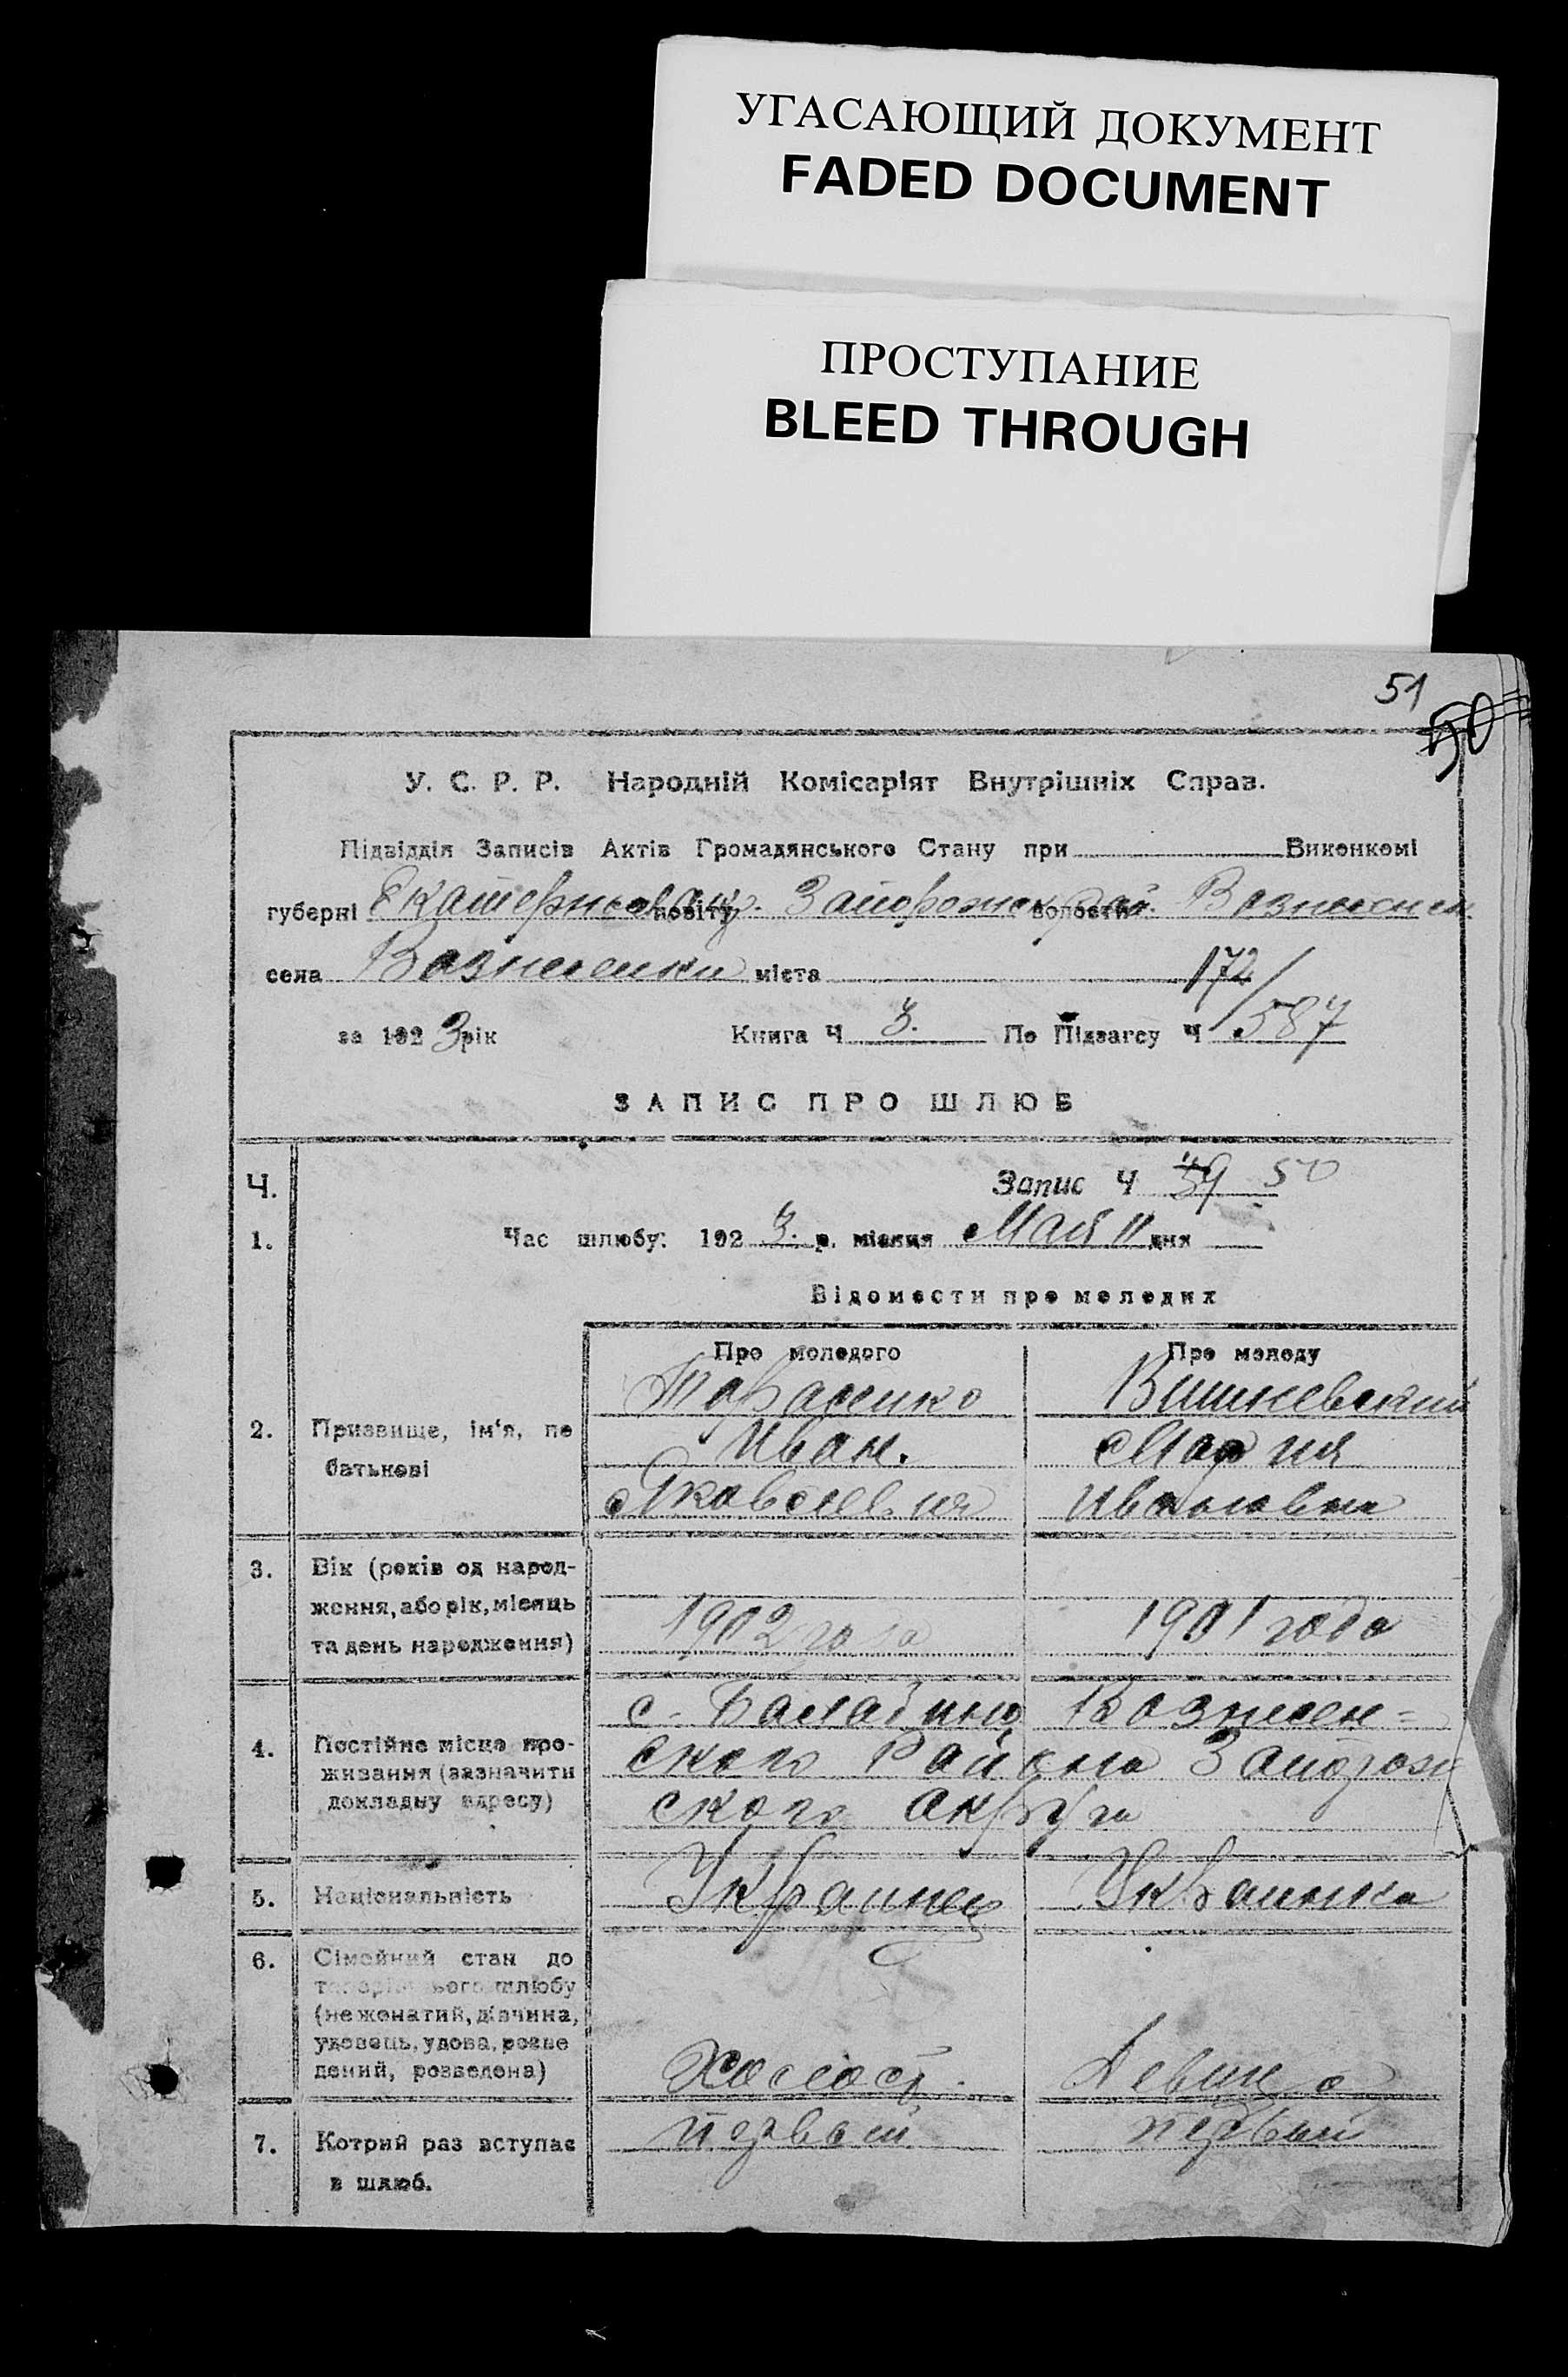 УГАСАЮЩИЙ ДОКУМЕНТ
FADED DOCUMENT
ПРОСТУПАНИЕ
BLEED THROUGH
51
50
У. С. Р. Р. Народній Комісаріят Внутрішніх Справ.
Підвідділ Записів Актів Громадянського Стану при Виконкомі
губерні Екатеринослав повіту Запорожск волости Вознесенск
села Вознесенки міста 172/
за 1923 рік Книга Ч 3. По Підзагсу Ч 587
ЗАПИС ПРО ШЛЮБ
Ч. Запис Ч 50
1. Час шлюбу: 1923. р. місяця Мая 11 дня
Відомости про молодих
Про молодого Про молоду
Тарасенко Вишневский
2. Призвище, ім'я, по Иван. Мария
батькові Яковлевич Ивановна
3. Вік (років од народ-
ження, або рік, місяць
та день народження) 1902 года 1901 года
с. Балабино Вознесен-
4. Постійне місце про- ского Района Запорож
живання (зазначити
докладну адресу) ского округа
5. Національність Украинец Украинка
6. Сімейний стан до
теперішнього шлюбу
(не жонатий, дівчина,
удовець, удова, розве
дений, розведена) Холост. Девица
7. Котрий раз вступає первый первый
в шлюб.